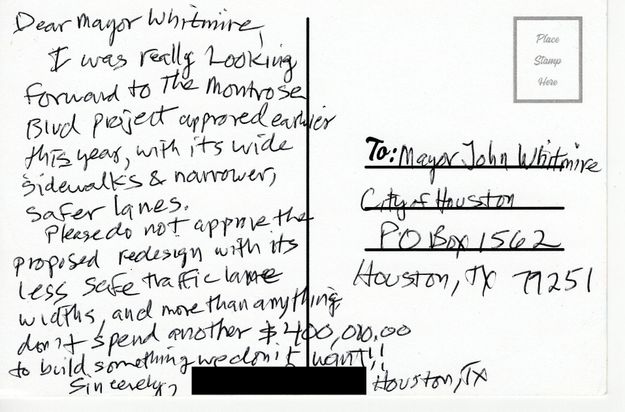 Dear Mayor Whitmire,
I was really Looking
forward to The Montrose
Blvd project approved earlier
this year, with its wide
sidewalks & narrower,
safer lanes.
Please do not approve the
proposed redesign with its
less safe traffic lane
widths, and more than anything
don't spend another $400,000.00
to build something we don't want!!
Sincerely,
Houston, TX
Place
Stamp
Here
To: Mayor John Whitmire
City of Houston
PO Box 1562
Houston, TX 77251